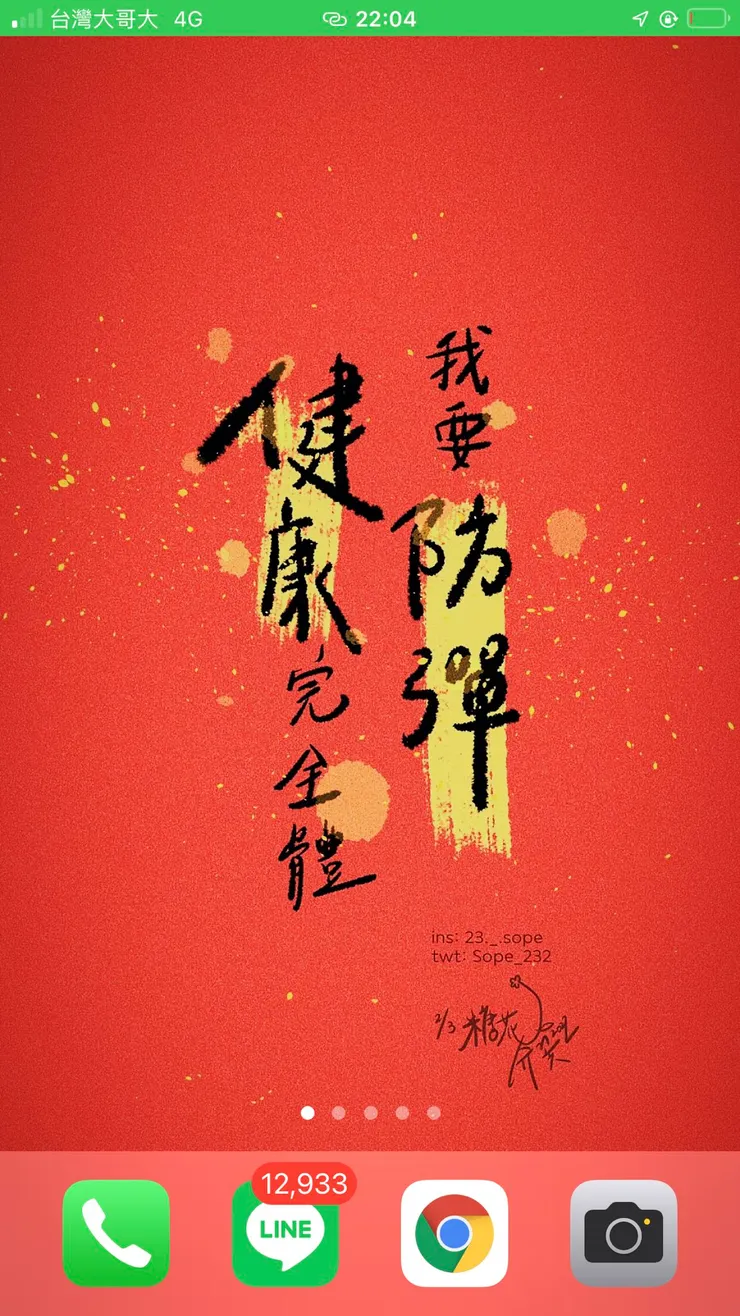 台灣大哥大 4G 22:04
我要防彈
健康完全體
ins: 23._.sope
twt: Sope_232
2/3 糖花
12,933
LINE